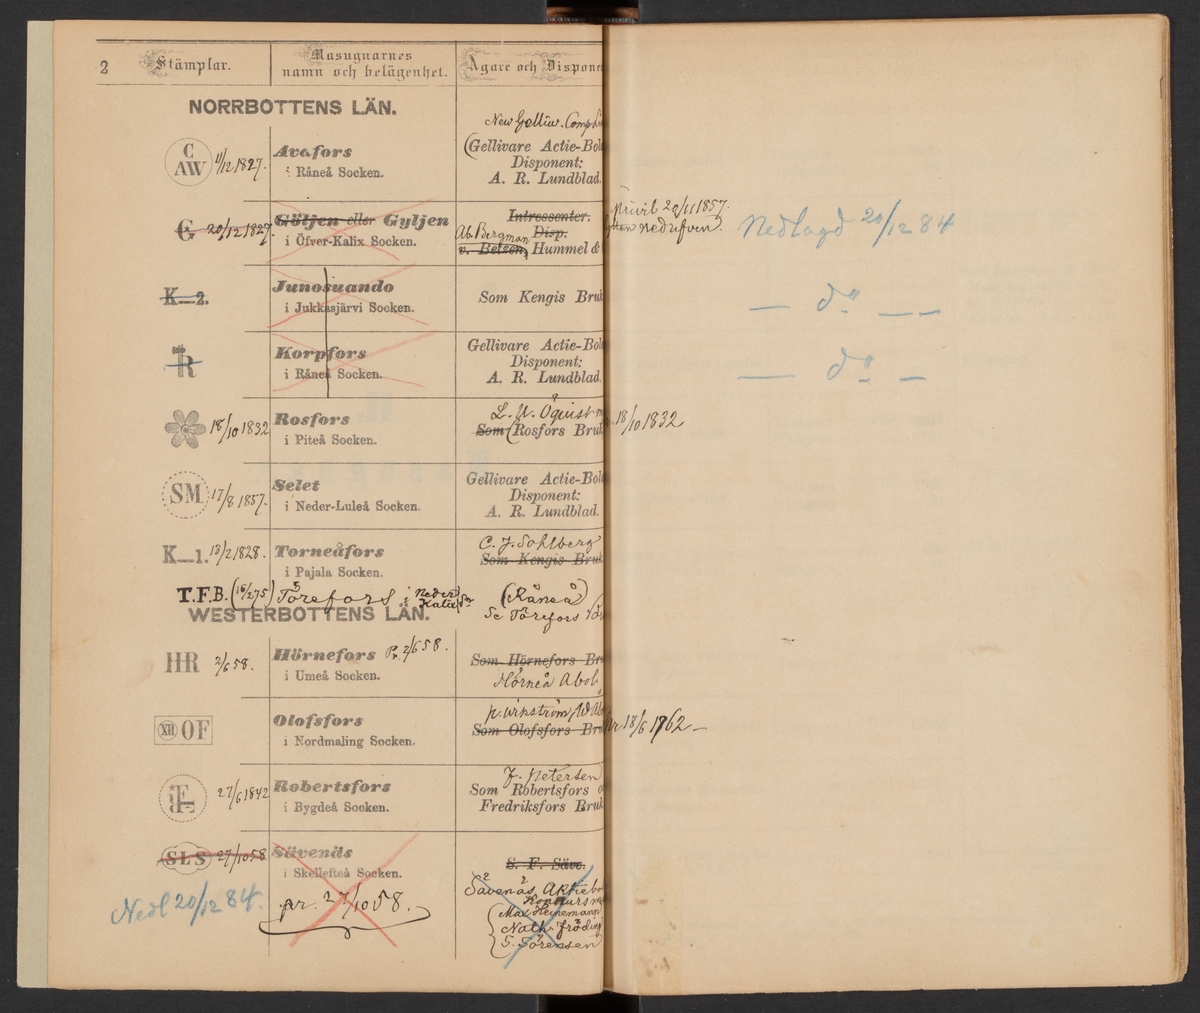 2
Stämplar.
Masugnarnes
namn och belägenhet.
Ägare och Dispone
NORRBOTTENS LÄN.
New Gelliw. Comp
C
AW
11/12 1827.
Avafors
i Råneå Socken.
(Gellivare Actie-Bol
Disponent:
A. R. Lundblad.
G 20/12 1827.
Göljen eller Gyljen
i Öfver-Kalix Socken.
Intressenter.
Disp.
Ab Bergman
v. Betzen, Hummel &
Privil 20/11 1857.
Nedlagd 20/12 84
K—2.
Junosuando
i Jukkasjärvi Socken.
Som Kengis Bruk
— do —
R
Korpfors
i Råneå Socken.
Gellivare Actie-Bol
Disponent:
A. R. Lundblad.
— do —
18/10 1832
Rosfors
i Piteå Socken.
L. U. Öquist
Som (Rosfors Bruk
18/10 1832
SM 17/8 1857.
Selet
i Neder-Luleå Socken.
Gellivare Actie-Bol
Disponent:
A. R. Lundblad.
K—1. 13/2 1828.
Torneåfors
i Pajala Socken.
C. J. Sohlberg
Som Kengis Bruk
T.F.B. (16/2 75) Törefors i Neder
Kalix Sn
(Råneå)
Se Törefors
WESTERBOTTENS LÄN.
HR 2/6 58.
Hörnefors Pr. 2/6 58.
i Umeå Socken.
Som Hörnefors Br
Hörneå Abol
XII OF
Olofsfors
i Nordmaling Socken.
Som Olofsfors Bru
Pr 18/6 1762 —
27/6 1842
Robertsfors
i Bygdeå Socken.
F. Petersen
Som Robertsfors o
Fredriksfors Bruk
SLS 27/10 58
Sävenäs
i Skellefteå Socken.
pr. 27/10 58.
Nedl 20/12 84.
S. F. Säve.
Sävenäs Aktiebo
Konkurs
Max Heinemann
Nath. Fröding
S. Sörensen